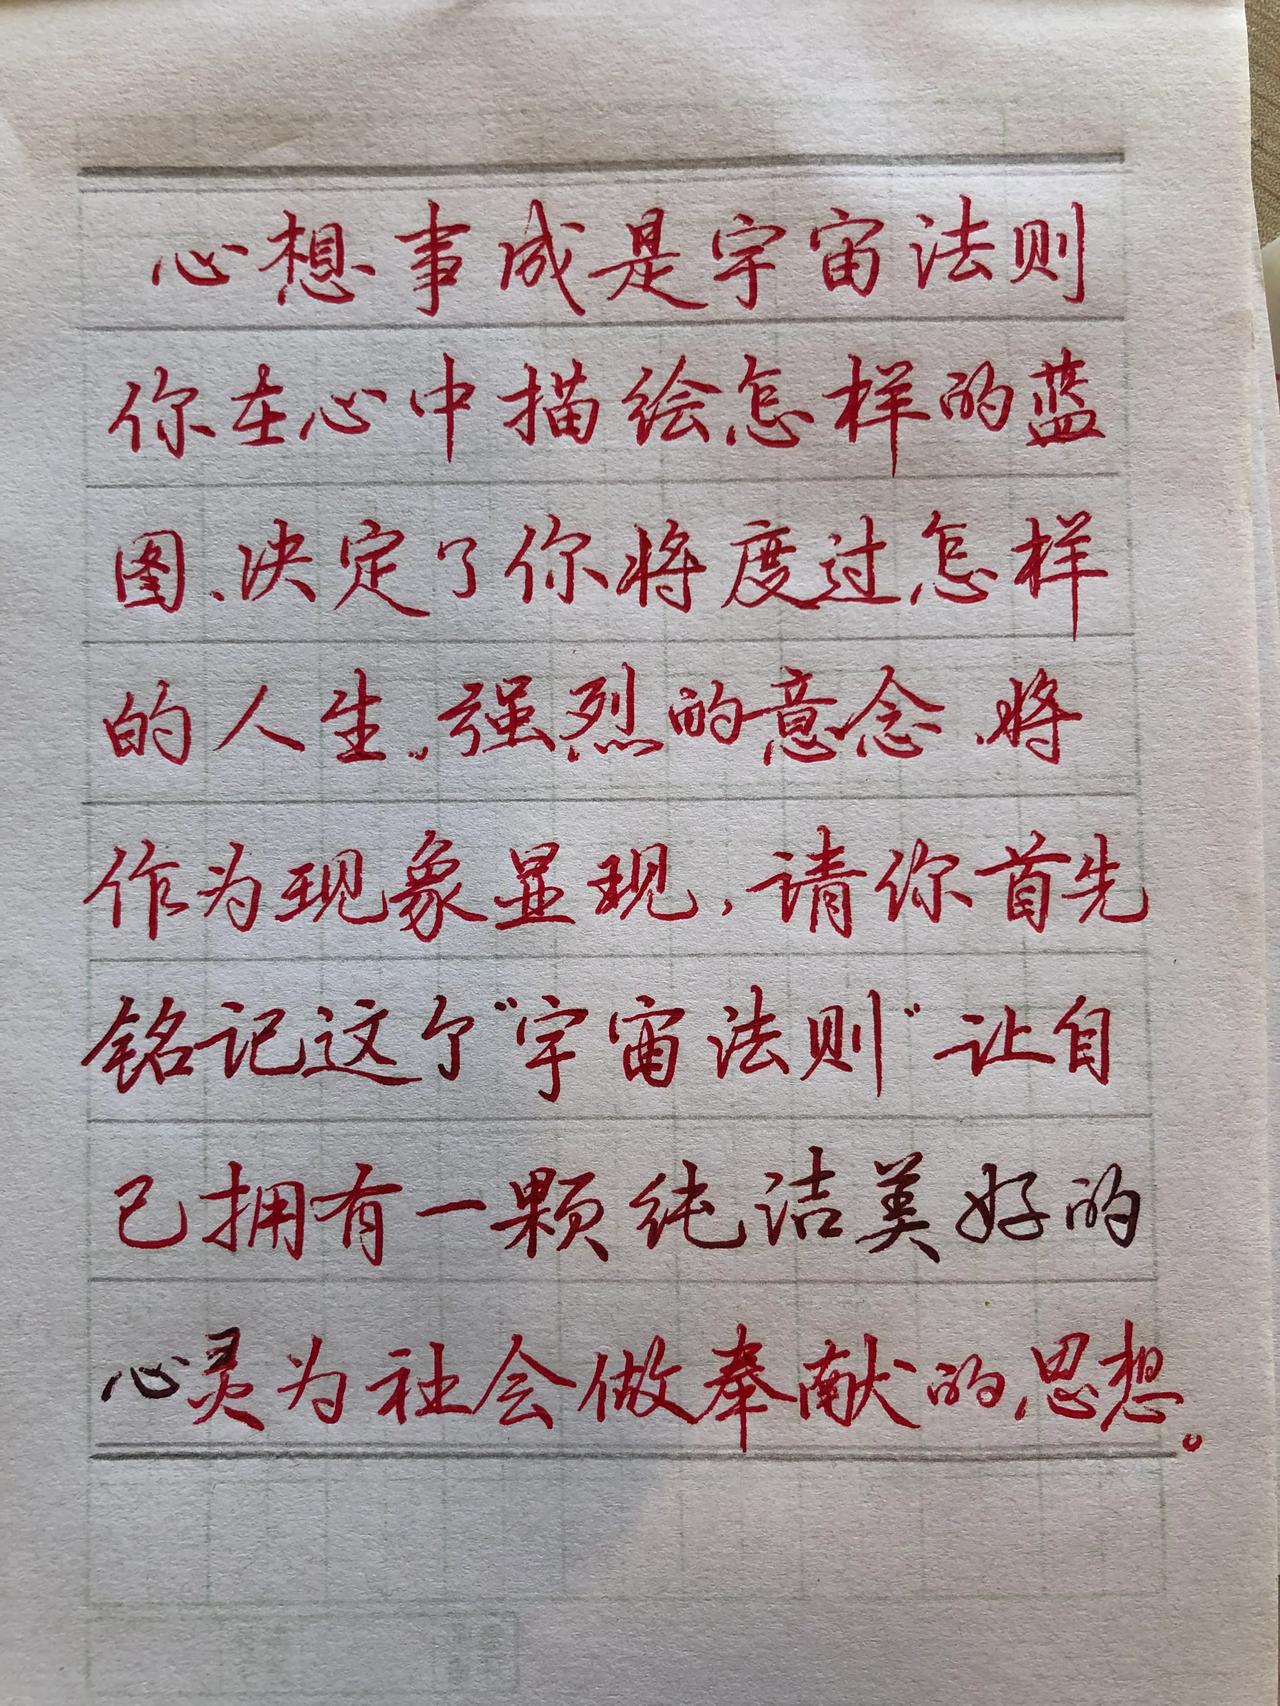 心想事成是宇宙法则
你在心中描绘怎样的蓝
图、决定了你将度过怎样
的人生。强烈的意念、将
作为现象显现，请你首先
铭记这个“宇宙法则”让自
己拥有一颗纯洁美好的
心灵为社会做奉献的思想。